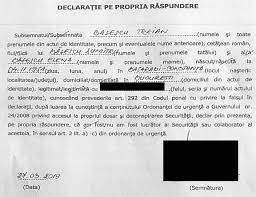 DECLARAȚIE PE PROPRIA RĂSPUNDERE
Subsemnatul/Subsemnata BĂSESCU TRAIAN (numele și toate
prenumele din actul de identitate, precum și eventualele nume anterioare), cetățean român,
fiul/fiica lui BĂSESCU DUMITRU (numele și prenumele tatălui) și al/a
BĂSESCU ELENA (numele și prenumele mamei), născut/născută
04.11.1951 (ziua, luna, anul) în BASARABI-CONSTANȚA (locul nașterii:
localitatea/județul), domiciliat/domiciliată în BUCUREȘTI
(domiciliul din actul
de identitate), legitimat/legitimată cu (felul, seria și numărul actului
de identitate), cunoscând prevederile art. 292 din Codul penal cu privire la falsul în
declarații, după luarea la cunoștință a conținutului Ordonanței de urgență a Guvernului nr.
24/2008 privind accesul la propriul dosar și deconspirarea Securității, declar prin prezenta,
pe propria răspundere, că am fost/nu am fost lucrător al Securității sau colaborator al
acesteia, în sensul art. 2 lit. a)-c) din ordonanța de urgență.
27.03.2019
(Data)
(Semnătura)